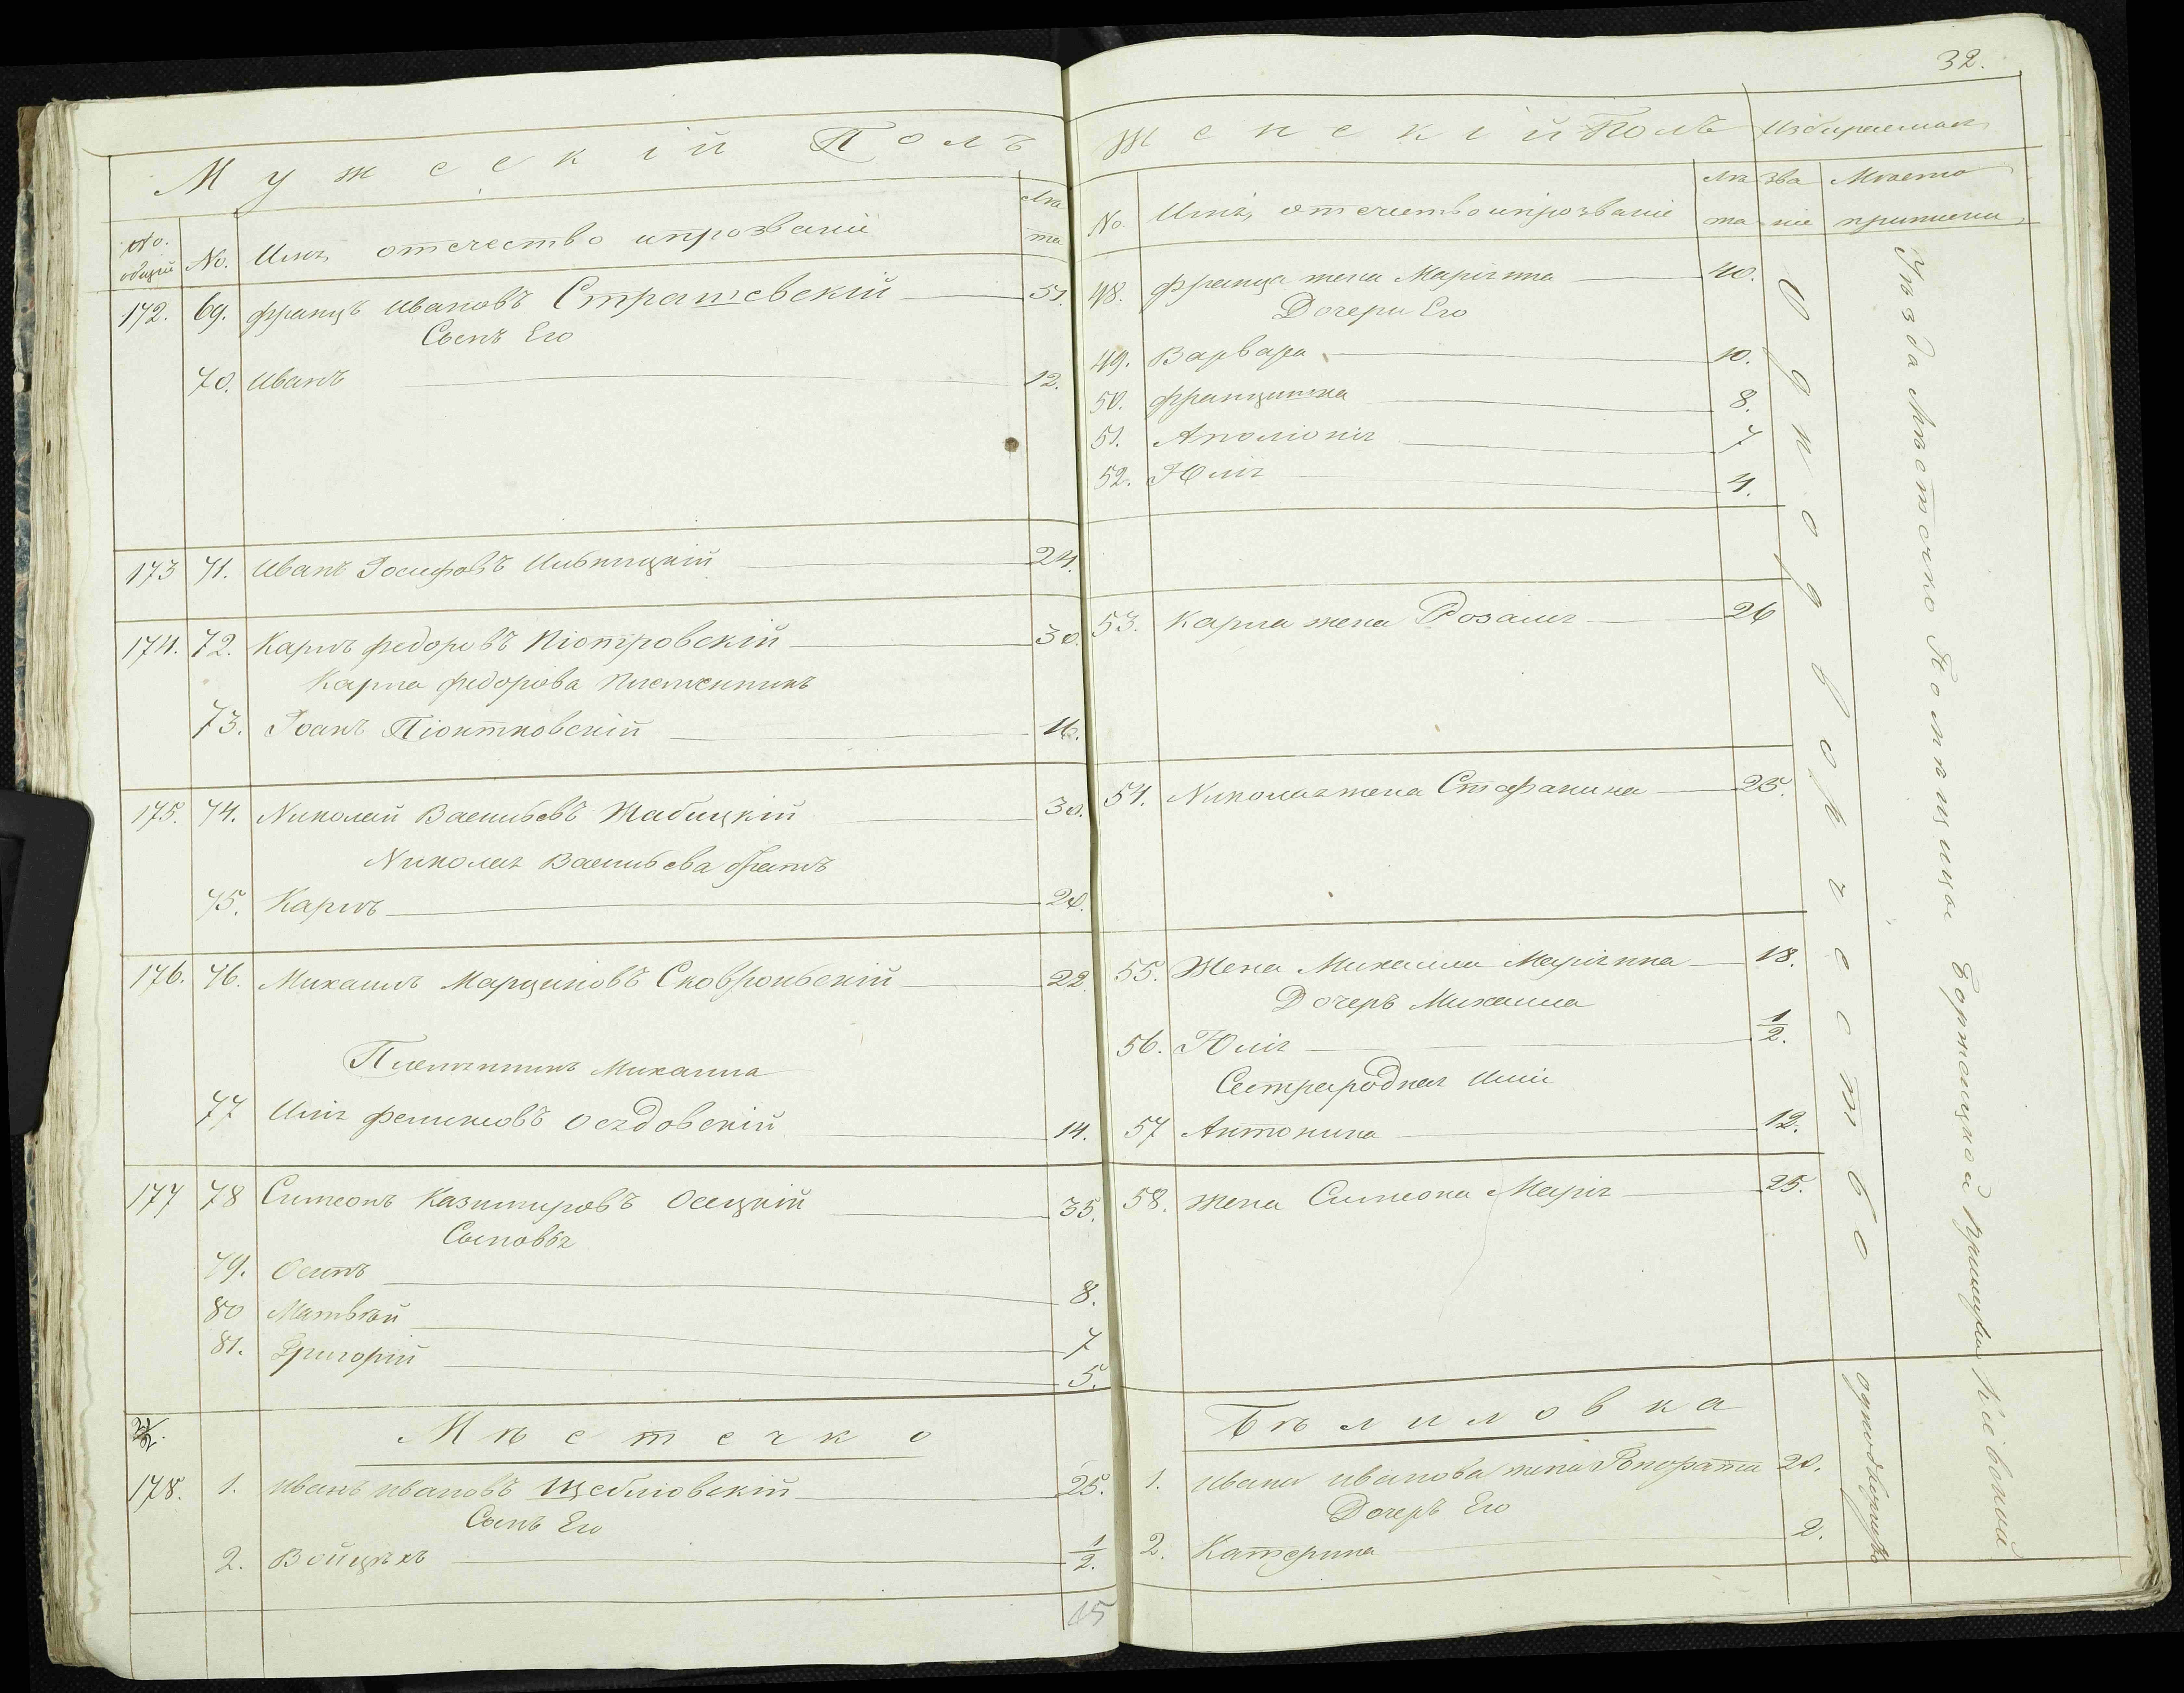 Мужескій Полъ
№ общій
№.
Имя, отечество и прозваніе
Лѣта
172. 69. Францъ Ивановъ Страшевскій 51.
Сынъ Его
70. Иванъ 12.
173 71. Иванъ Іосифовъ Ильницкій 24.
174. 72. Карлъ Федоровъ Піотровскій 30.
Карла Федорова Племянникъ
73. Іоанъ Піонтковскій 16.
175. 74. Николай Васильевъ Жабицкій 30.
Николая Васильева братъ
75. Карлъ 20.
176. 76. Михаилъ Марциновъ Сковроньскій 22.
Племянникъ Михаила
77 Илія Феликсовъ Осадовскій 14.
177 78 Симеонъ Казимировъ Осецкій 35.
Сыновья
79. Осипъ 8.
80 Матвѣй 7
81. Григорій 5.
Мѣстечко
178. 1. Иванъ Ивановъ Щебліовскій 25.
Сынъ Его
2. Войцѣхъ 1/2.
15
32.
Женскій Полъ
Избираемая
№
Имя, отечество и прозваніе
Лѣта
званіе
Мѣсто приписки
48. Франца жена Маріянна 40.
Дочери Его
49. Варвара 10.
50. Францишка 8.
51. Аполіонія 7
52. Юлія 4.
53. Карла жена Розалія 26
54. Николая жена Стефанина 25.
55. Жена Михаила Маріянна 18.
Дочерь Михаила
56. Юлія 1/2.
Сестра родная Иліи
57 Антонина 12.
58. Жена Симеона Марія 25.
Однодворчество
Уѣзда Мѣстечко Борщицкой Кіевской
Бѣлиловка
1. Ивана Иванова жена Гонората 20.
Дочерь Его
2. Катерина 2.